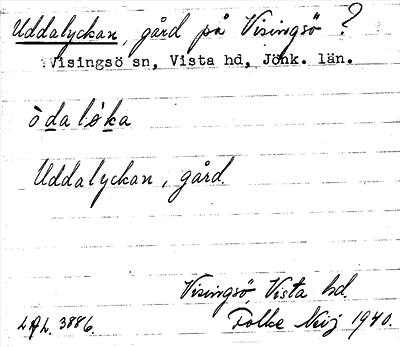 Uddalyckan, gård på Visingsö ?
Visingsö sn, Vista hd, Jönk. län.
òdaløka
Uddalyckan, gård
Visingsö, Vista hd.
LAL. 3886. Folke Neij 1940.